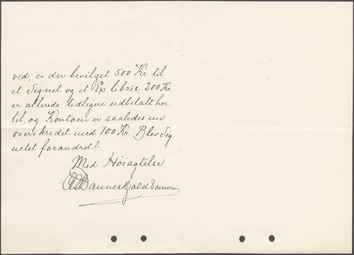 ved, er der bevilget 500 Kr til
et Signet og et Ex libris. 200 Kr
er allerede tidligere udbetalt her
til, og Kontoen er saaledes nu
overskredet med 100 Kr.
Med Høiagtelse